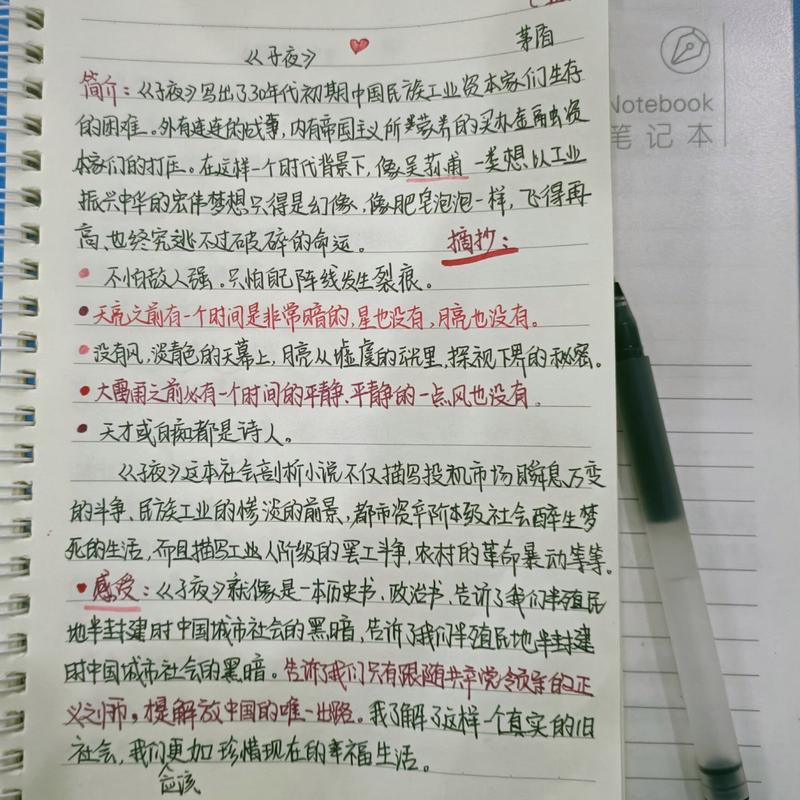 《子夜》
茅盾
简介：《子夜》写出了30年代初期中国民族工业资本家们生存
的困难。外有连连的战事，内有帝国主义所营养的买办金融资
本家们的打压。在这样一个时代背景下，像吴荪甫一类想以工业
振兴中华的宏伟梦想只得是幻像，像肥皂泡泡一样，飞得再
高、也终究逃不过破碎的命运。
摘抄：
不怕敌人强。只怕自己阵线发生裂痕。
天亮之前有一个时间是非常暗的，星也没有，月亮也没有。
没有风，淡青色的天幕上，月亮从虚虞的动里，探视下界的秘密。
大雷雨之前必有一个时间的平静、平静的一点风也没有。
天才或白痴都是诗人。
《子夜》这本社会剖析小说不仅描写投机市场瞬息万变
的斗争、民族工业的惨淡的前景，都市资产阶本级社会醉生梦
死的生活，而且描写工业人阶级的罢工斗争，农村的革命暴动等等。
感受：《子夜》就像是一本历史书、政治书、告诉了我们半殖民
地半封建时中国城市社会的黑暗，告诉了我们半殖民地半封建
时中国城市社会的黑暗。告诉了我们只有跟随共产党领导的正
义之师，才是解放中国的唯一出路。我了解了这样一个真实的旧
社会，我们更加珍惜现在的幸福生活。
应该
Notebook
笔记本